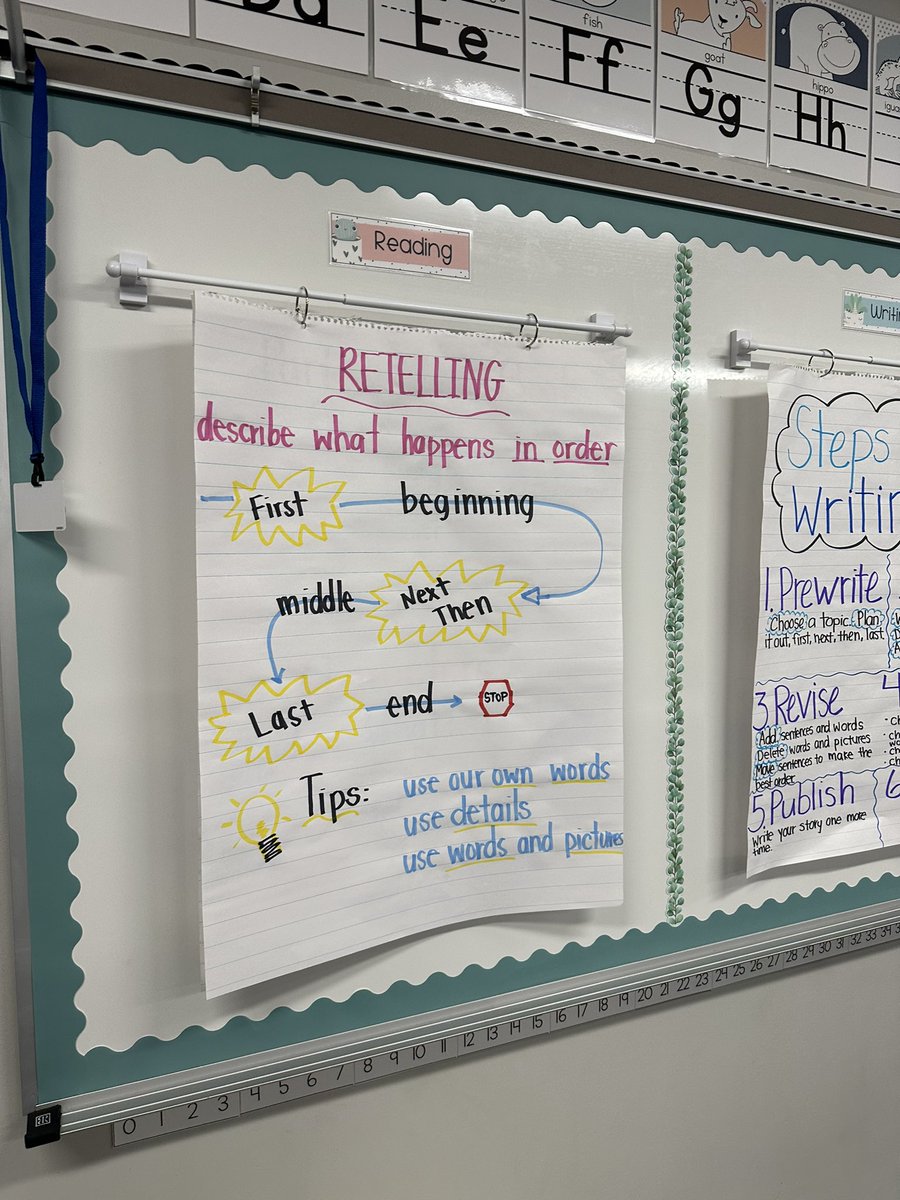 Dd
Ee
fish
Ff
goat
Gg
hippo
Hh
Reading
RETELLING
describe what happens in order
First beginning
middle Next
Then
Last end STOP
Tips: use our own words
use details
use words and pictures
Steps
1. Prewrite
Choose a topic. Plan
it out, first, next, then, last
3. Revise
Add sentences and words
Delete words and pictures
Move sentences to make the
best order
5. Publish
Write your story one more
time.
0 1 2 3 4 5 6 7 8 9 10 11 12 13 14 15 16 17 18 19 20 21 22 23 24 25 26 27 28 29 30 31 32 33 34